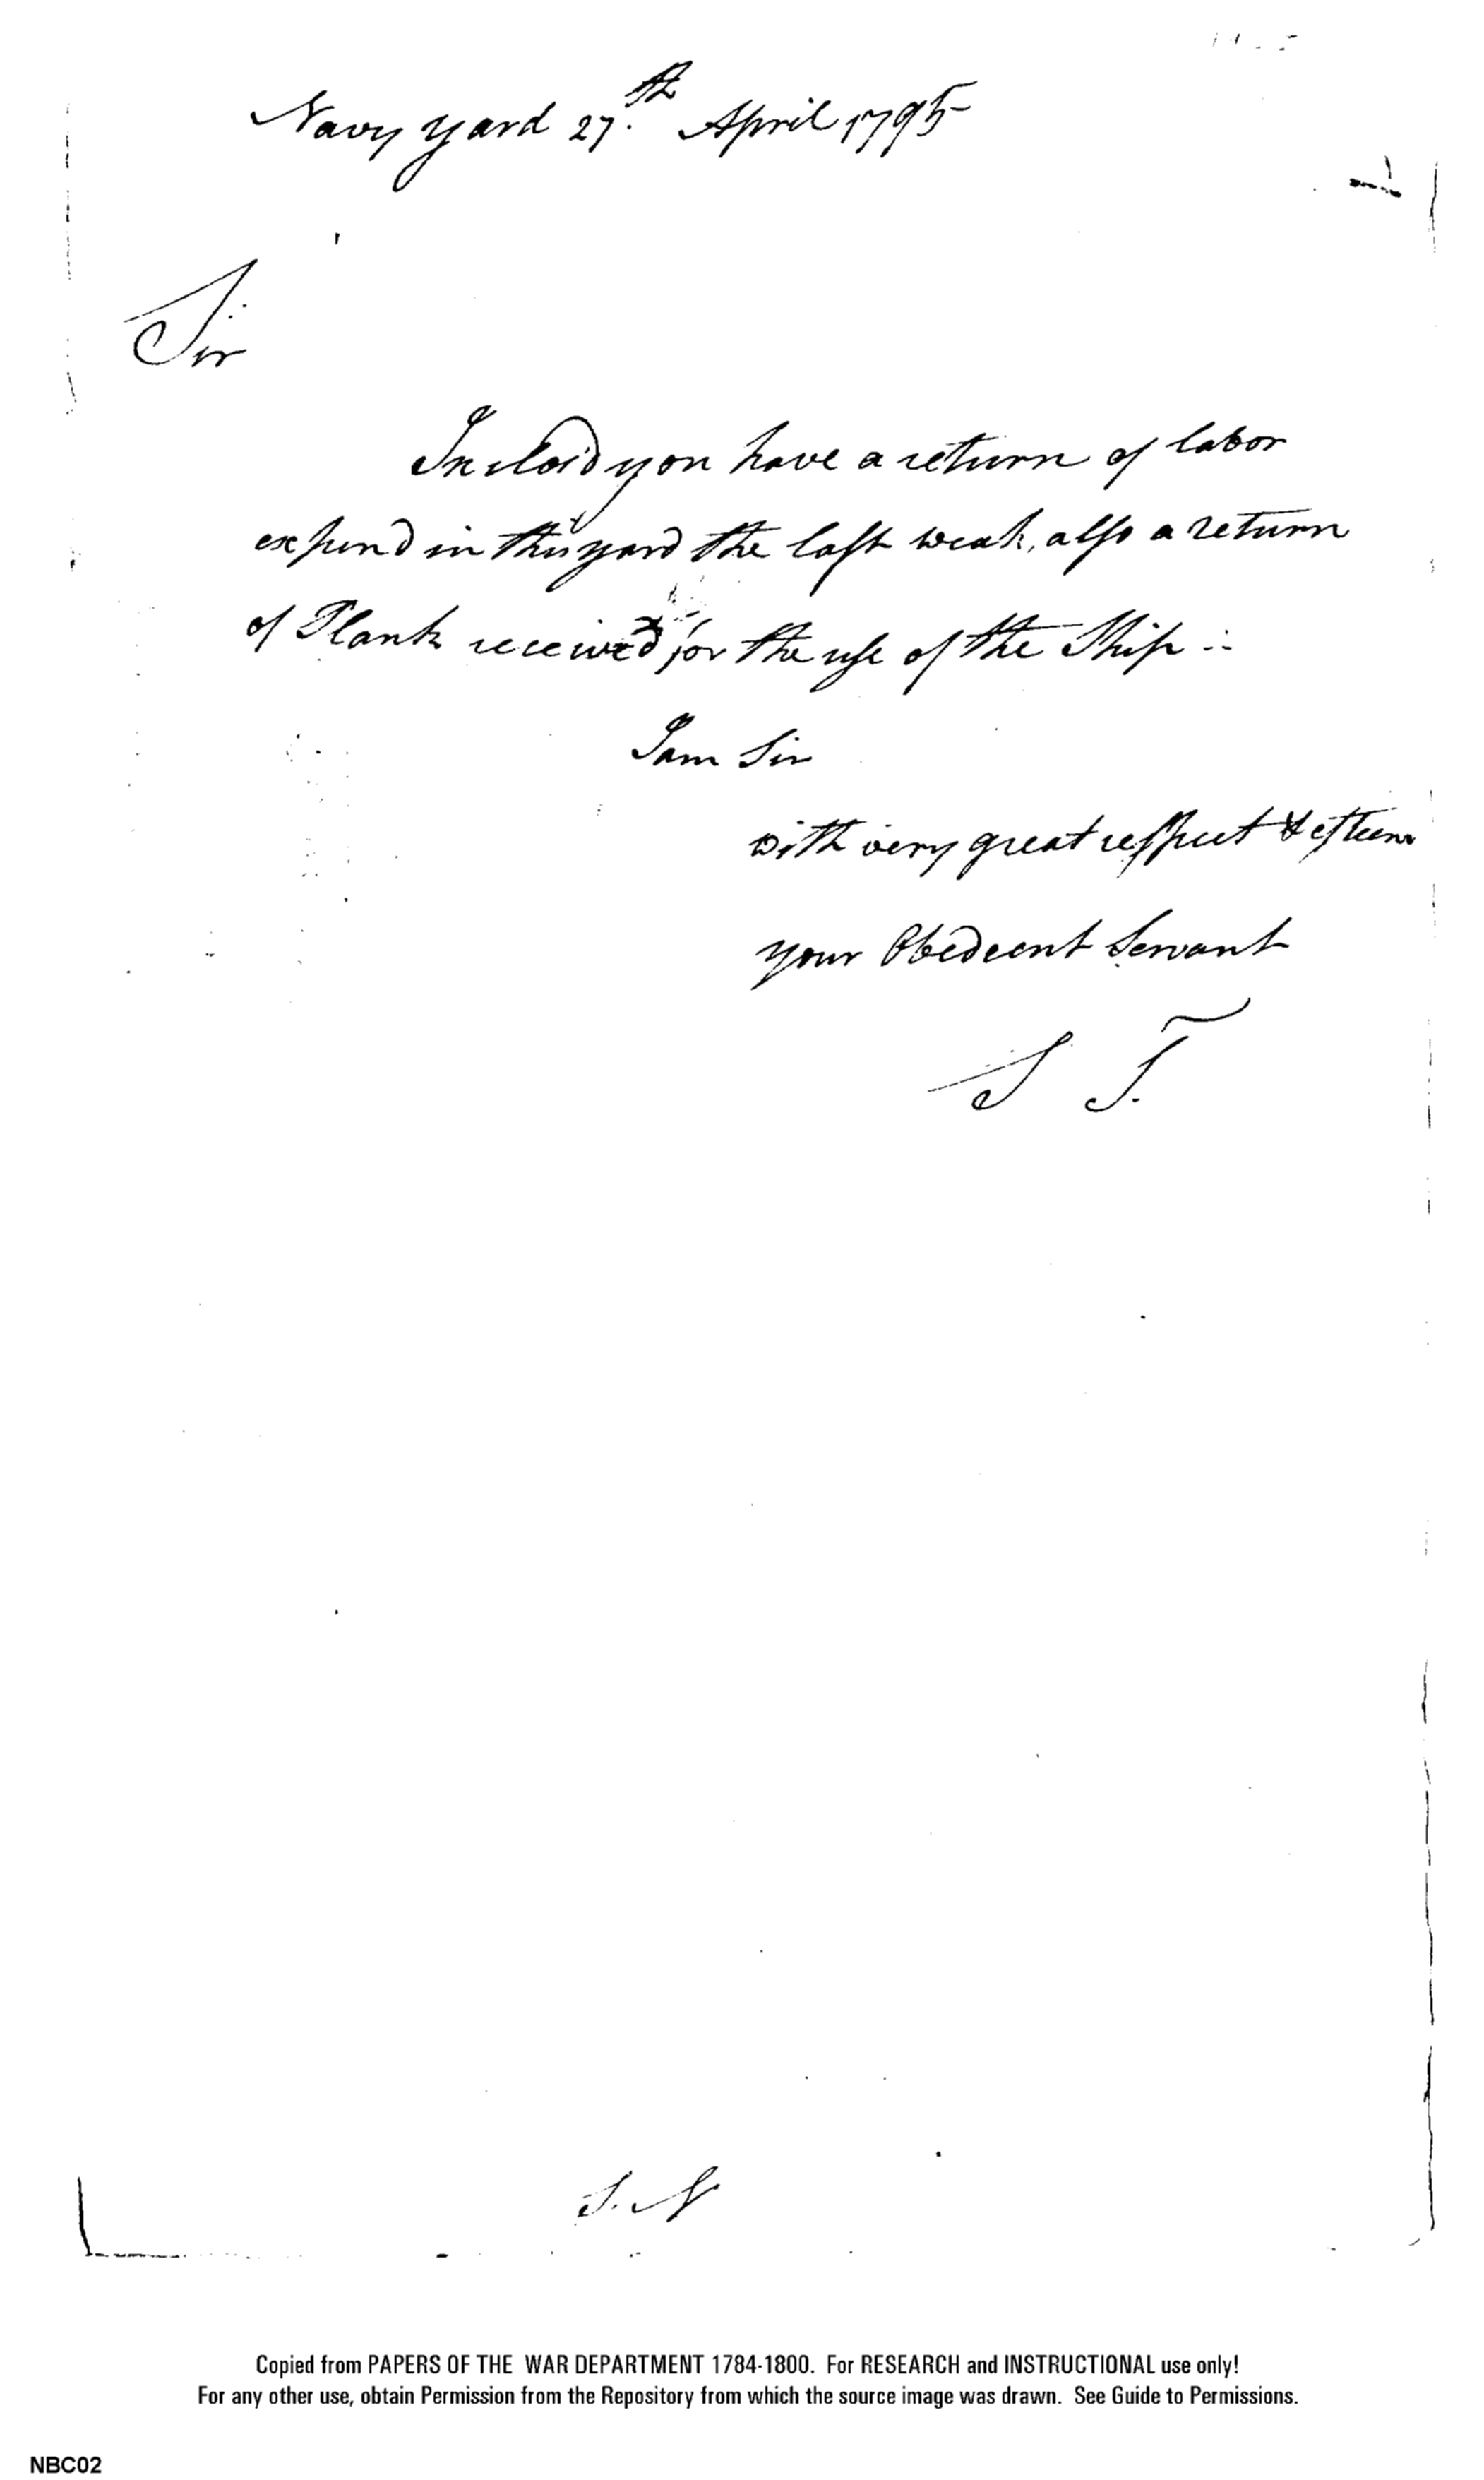 Navy yard 27.th April 1795
Sir
Inclosd you have a return of labor
expend in this yard the last weak, also a return
of Plank received for the use of the Ship
I am Sir
with very great respect & esteem
your Obedient Servant
S T.
J. N
Copied from PAPERS OF THE WAR DEPARTMENT 1784-1800. For RESEARCH and INSTRUCTIONAL use only!
For any other use, obtain Permission from the Repository from which the source image was drawn. See Guide to Permissions.
NBC02